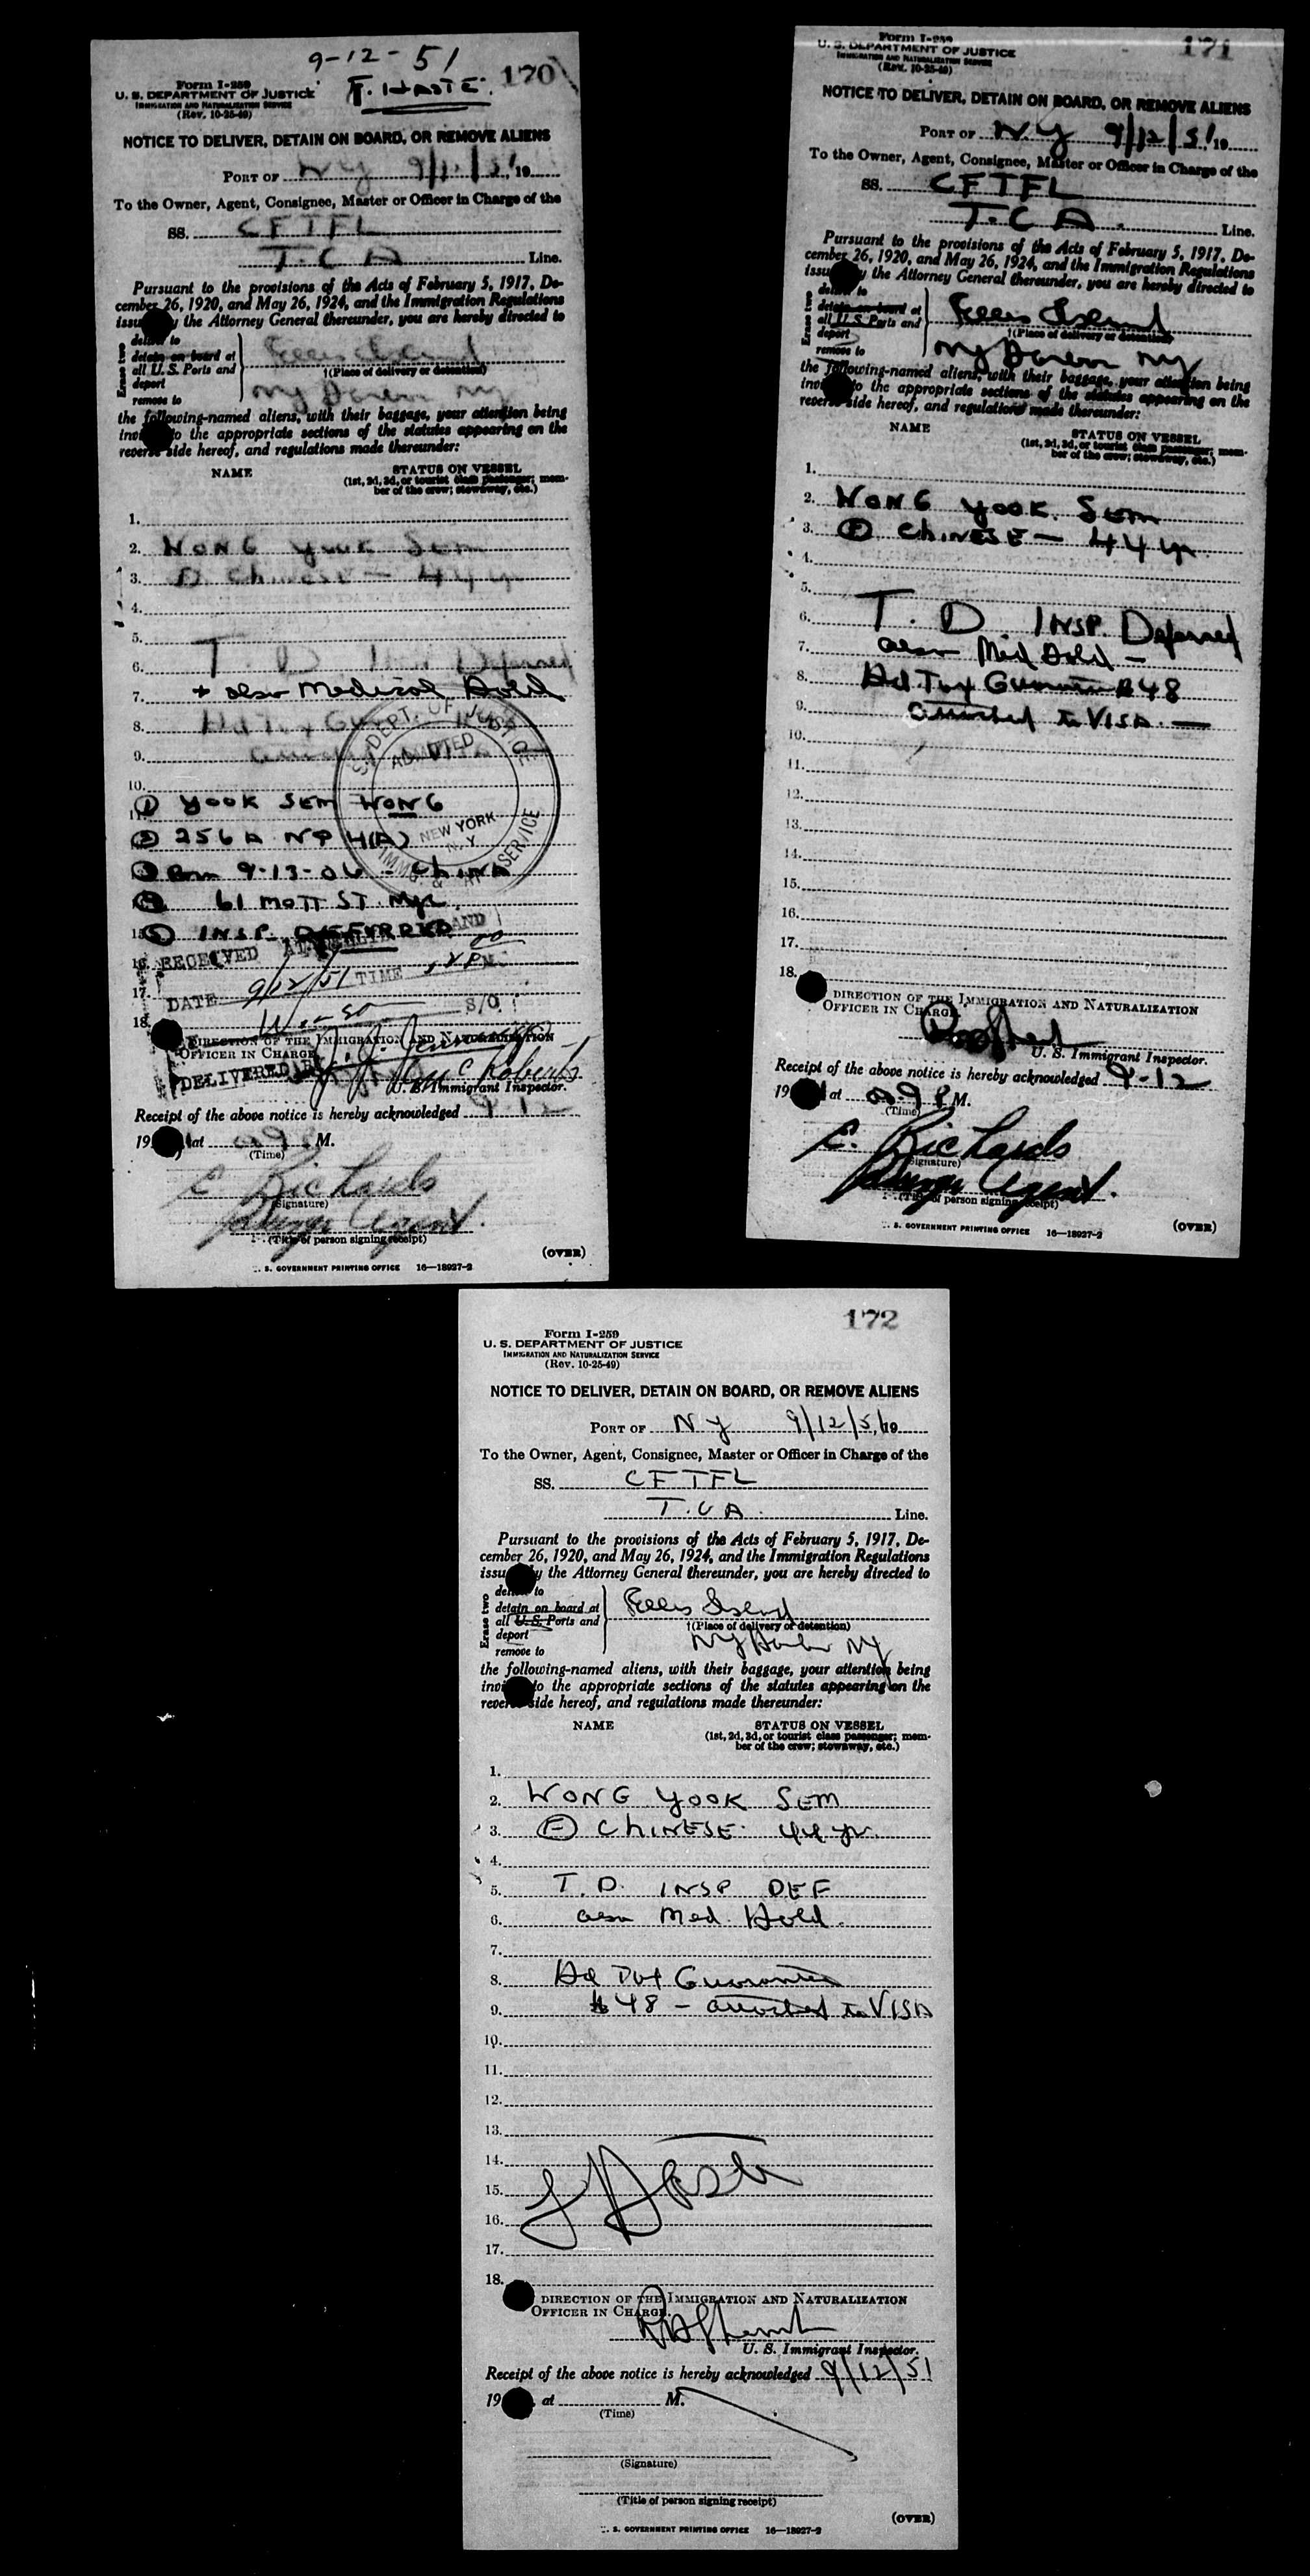 9-12-51
F. HASTE.
170
Form I-259
U. S. DEPARTMENT OF JUSTICE
IMMIGRATION AND NATURALIZATION SERVICE
(Rev. 10-25-49)
NOTICE TO DELIVER, DETAIN ON BOARD, OR REMOVE ALIENS
PORT OF NY 9/12/51, 19
To the Owner, Agent, Consignee, Master or Officer in Charge of the
SS. CFTFL
T.C.A Line.
Pursuant to the provisions of the Acts of February 5, 1917, De-
cember 26, 1920, and May 26, 1924, and the Immigration Regulations
issu y the Attorney General thereunder, you are hereby directed to
Erase two
deliver to
detain on board at
all U. S. Ports and
deport
remove to
Ellis Island
†(Place of delivery or detention)
NY Harbor NY
the following-named aliens, with their baggage, your attention being
invi to the appropriate sections of the statutes appearing on the
reverse side hereof, and regulations made thereunder:
NAME STATUS ON VESSEL
(1st, 2d, 3d, or tourist class passenger; mem-
ber of the crew; stowaway, etc.)
1.
2. WONG YOOK SEM
3. Chinese - 44 yr
4.
5.
6. T. D Insp Deferred
7. + also Medical Hold
8. Hd Tax Guar
9.
10.
① YOOK SEM WONG
② 256 A NP 4(A)
③ Born 9-13-06 - CHINA
④ 61 MOTT ST. NYC
⑤ INSP. DEFERRED
U.S. DEPT. OF JUSTICE
ADMITTED
NEW YORK
N. Y.
IMMIG. & NAT. SERVICE
RECEIVED AT ELLIS ISLAND
DATE 9/12/51 TIME PM
17.
S/O
18.
DIRECTION OF THE IMMIGRATION AND NATURALIZATION
OFFICER IN CHARGE
DELIVERED BY
U. S. Immigrant Inspector.
Receipt of the above notice is hereby acknowledged 9-12
19 at M.
(Time)
C. Richards
(Signature)
Agent.
(Title of person signing receipt)
(OVER)
U. S. GOVERNMENT PRINTING OFFICE 16—18927-2
171
Form I-259
U. S. DEPARTMENT OF JUSTICE
IMMIGRATION AND NATURALIZATION SERVICE
(Rev. 10-25-49)
NOTICE TO DELIVER, DETAIN ON BOARD, OR REMOVE ALIENS
PORT OF NY 9/12/51, 19
To the Owner, Agent, Consignee, Master or Officer in Charge of the
SS. CFTFL
T.C.A. Line.
Pursuant to the provisions of the Acts of February 5, 1917, De-
cember 26, 1920, and May 26, 1924, and the Immigration Regulations
issu y the Attorney General thereunder, you are hereby directed to
Erase two
deliver to
detain on board at
all U. S. Ports and
deport
remove to
Ellis Island
†(Place of delivery or detention)
NY Harbor NY
the following-named aliens, with their baggage, your attention being
invi to the appropriate sections of the statutes appearing on the
reverse side hereof, and regulations made thereunder:
NAME STATUS ON VESSEL
(1st, 2d, 3d, or tourist class passenger; mem-
ber of the crew; stowaway, etc.)
1.
2. WONG YOOK SEM
3. Ⓕ CHINESE - 44 yr.
4.
5.
6. T. D INSP. Deferred
7. also Med Hold -
8. Hd Tax Guarantee $48
9. attached to VISA -
10.
11.
12.
13.
14.
15.
16.
17.
18.
DIRECTION OF THE IMMIGRATION AND NATURALIZATION
OFFICER IN CHARGE
U. S. Immigrant Inspector.
Receipt of the above notice is hereby acknowledged 9-12
19 at P M.
(Time)
C. Richards
(Signature)
Agent.
(Title of person signing receipt)
U. S. GOVERNMENT PRINTING OFFICE 16—18927-2
(OVER)
172
Form I-259
U. S. DEPARTMENT OF JUSTICE
IMMIGRATION AND NATURALIZATION SERVICE
(Rev. 10-25-49)
NOTICE TO DELIVER, DETAIN ON BOARD, OR REMOVE ALIENS
PORT OF NY 9/12/51, 19
To the Owner, Agent, Consignee, Master or Officer in Charge of the
SS. CFTFL
T.C.A. Line.
Pursuant to the provisions of the Acts of February 5, 1917, De-
cember 26, 1920, and May 26, 1924, and the Immigration Regulations
issu y the Attorney General thereunder, you are hereby directed to
Erase two
deliver to
detain on board at
all U. S. Ports and
deport
remove to
Ellis Island
†(Place of delivery or detention)
NY Harbor NY
the following-named aliens, with their baggage, your attention being
invi to the appropriate sections of the statutes appearing on the
reverse side hereof, and regulations made thereunder:
NAME STATUS ON VESSEL
(1st, 2d, 3d, or tourist class passenger; mem-
ber of the crew; stowaway, etc.)
1.
2. WONG YOOK SEM
3. Ⓕ CHINESE. 44 yr.
4.
5. T.D. INSP DEF
6. also Med. Hold.
7.
8. Hd Tax Guarantee
9. $48 - attached to VISA
10.
11.
12.
13.
14.
15. F Haste
16.
17.
18.
DIRECTION OF THE IMMIGRATION AND NATURALIZATION
OFFICER IN CHARGE.
U. S. Immigrant Inspector.
Receipt of the above notice is hereby acknowledged 9/12/51
19 , at M.
(Time)
(Signature)
(Title of person signing receipt)
(OVER)
U. S. GOVERNMENT PRINTING OFFICE 16—18927-2